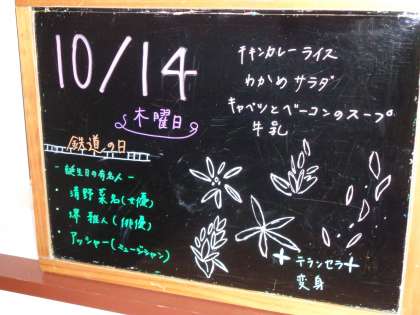 10/14
木曜日
鉄道の日
- 誕生日の有名人 -
・清野菜名(女優)
・堺 雅人(俳優)
・アッシャー(ミュージシャン)
チキンカレーライス
わかめサラダ
キャベツとベーコンのスープ
牛乳
+テランセラ+
変身